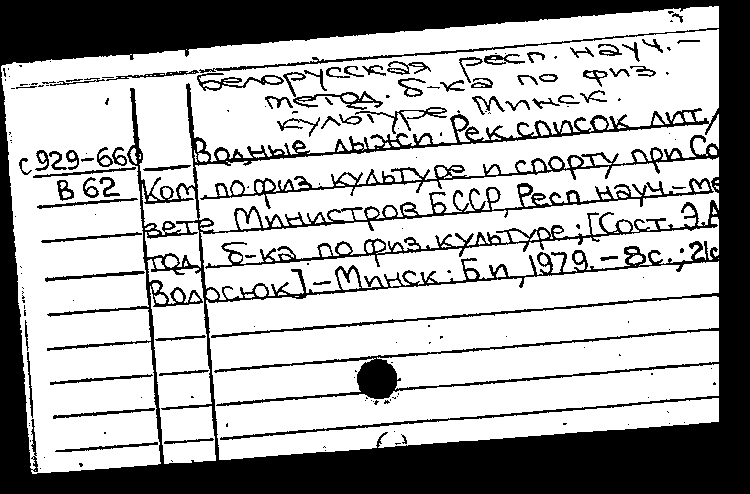 Белорусская респ. науч.-
метод. б-ка по физ.
культуре. Минск.
с929-660 Водные лыжи. Рек.список лит./
В 62 Ком. по физ. культуре и спорту при Со
вете Министров БССР, Респ. науч.-ме
тод. б-ка по физ. культуре; [Сост. Э.А
Волосюк].-Минск: Б.и, 1979.-8с.; 21с
(-)